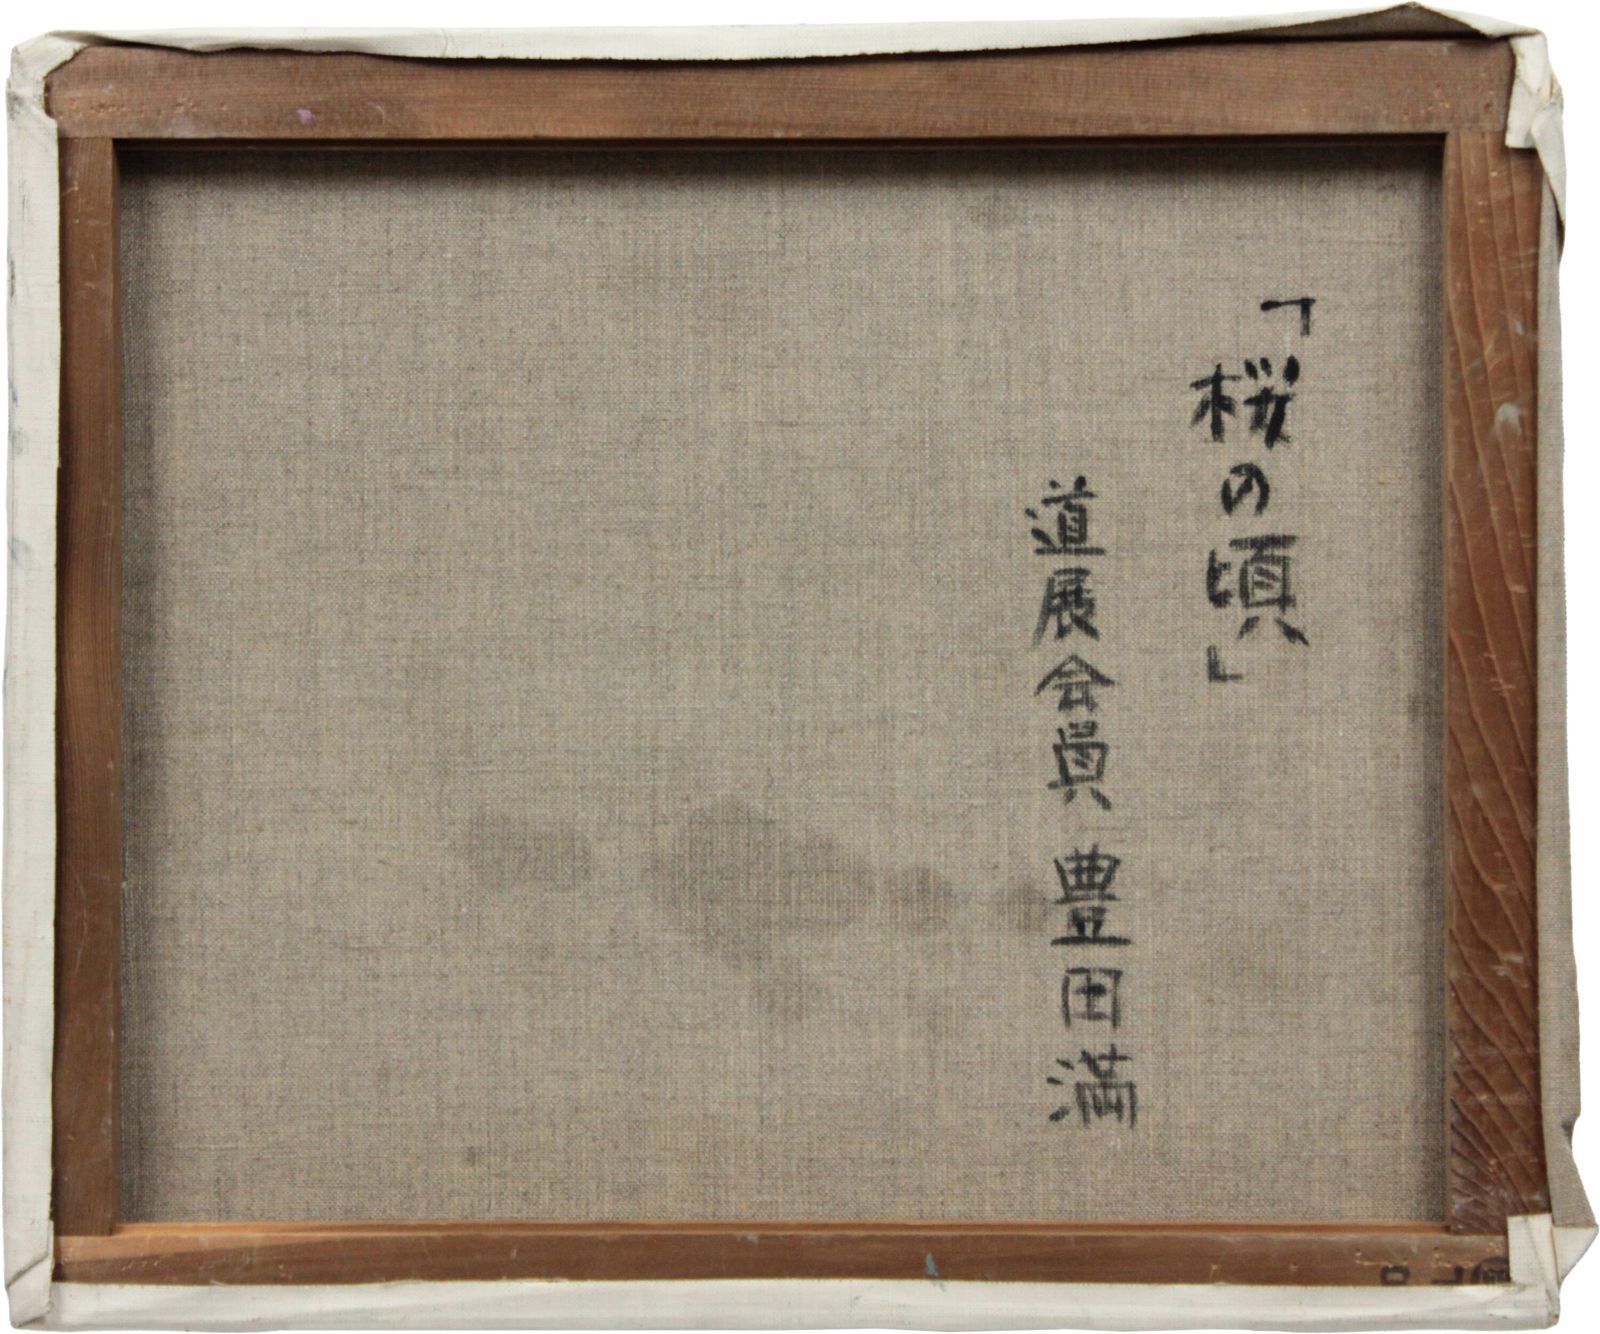 「桜の頃」
道展会員 豊田満